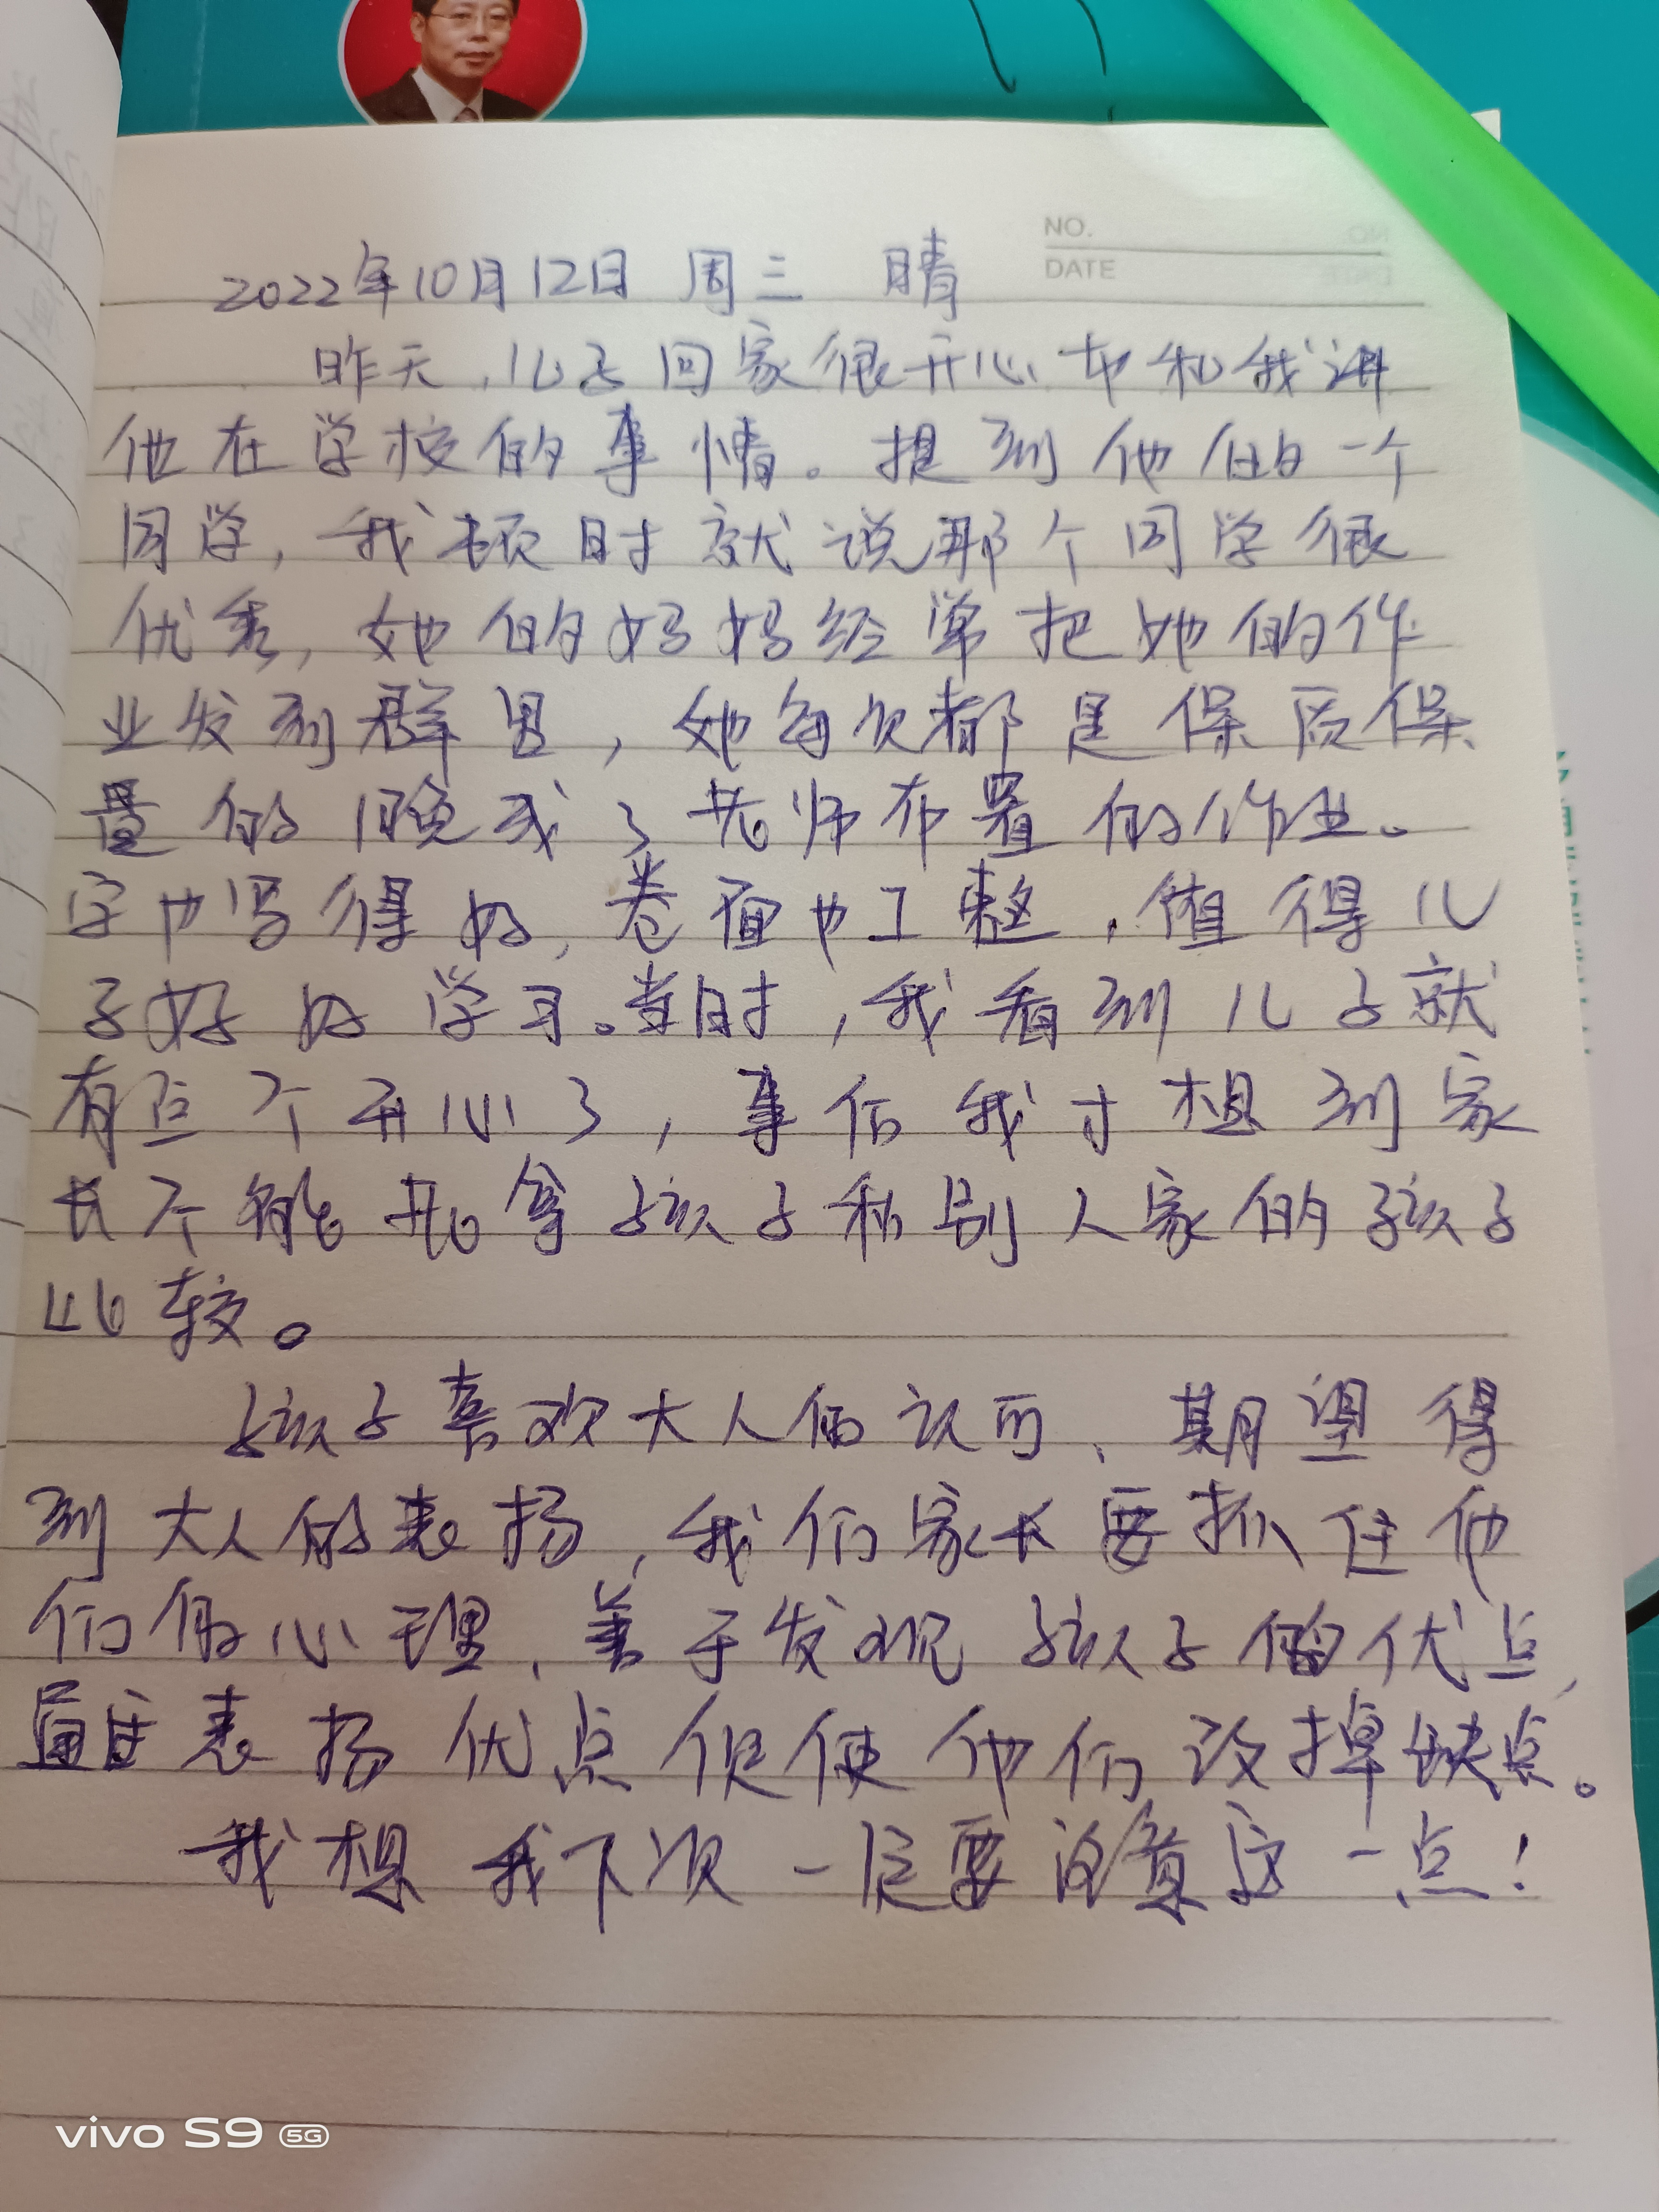 NO.
DATE
2022年10月12日 周三 晴
昨天,儿子回家很开心地和我讲
他在学校的事情。提到他的一个
同学,我顿时就说那个同学很
优秀,她的妈妈经常把她的作
业发到群里,她每次都是保质保
量的完成了老师布置的作业。
字也写得好,卷面也工整,值得儿
子好好学习。当时,我看到儿子就
有点不开心了,事后我才想到家
长不能老拿孩子和别人家的孩子
比较。
孩子喜欢大人的认可、期望得
到大人的表扬,我们家长要抓住他
们的心理,善于发现孩子的优点,
通过表扬优点促使他们改掉缺点。
我想我下次一定要注意这一点!
vivo S9 5G